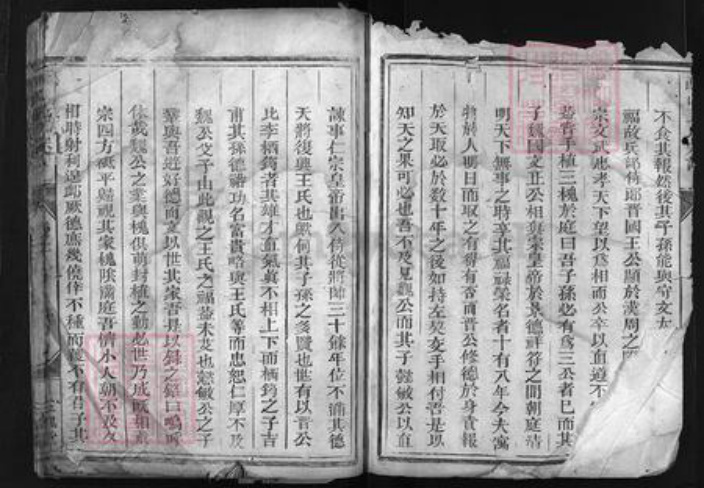 不食其報然後其子孫能與守文太
福故兵部侍郎晉國王公顯於漢周之
宗文武忠孝天下望以為相而公卒以直道不
蓋嘗手植三槐於庭曰吾子孫必有為三公者已而其
子魏國文正公相真宗皇帝於景德祥符之間朝庭清
明天下無事之時享其福祿榮名者十有八年今夫寓
物於人明日而取之有得有否而晉公修德於身責報
於天取必於數十年之後如持左契交手相付吾是以
知天之果可必也吾不及見魏公而其子懿敏公以直
諫事仁宗皇帝出入侍從將帥三十餘年位不滿其德
天將復興王氏也歟何其子孫之多賢也世有以晉公
比李栖筠者其雄才直氣眞不相上下而栖筠之子吉
甫其孫德裕功名富貴略與王氏等而忠恕仁厚不及
魏公父子由此觀之王氏之福蓋未艾也懿敏公之子
鞏與吾遊好德而文以世其家吾是以錄之銘曰嗚呼
休哉魏公之業與槐俱萌封植之勤必世乃成既相真
宗四方砥平歸視其家槐陰滿庭吾儕小人朝不及夕
相時射利遑卹厥德庶幾僥倖不種而穫不有君子其